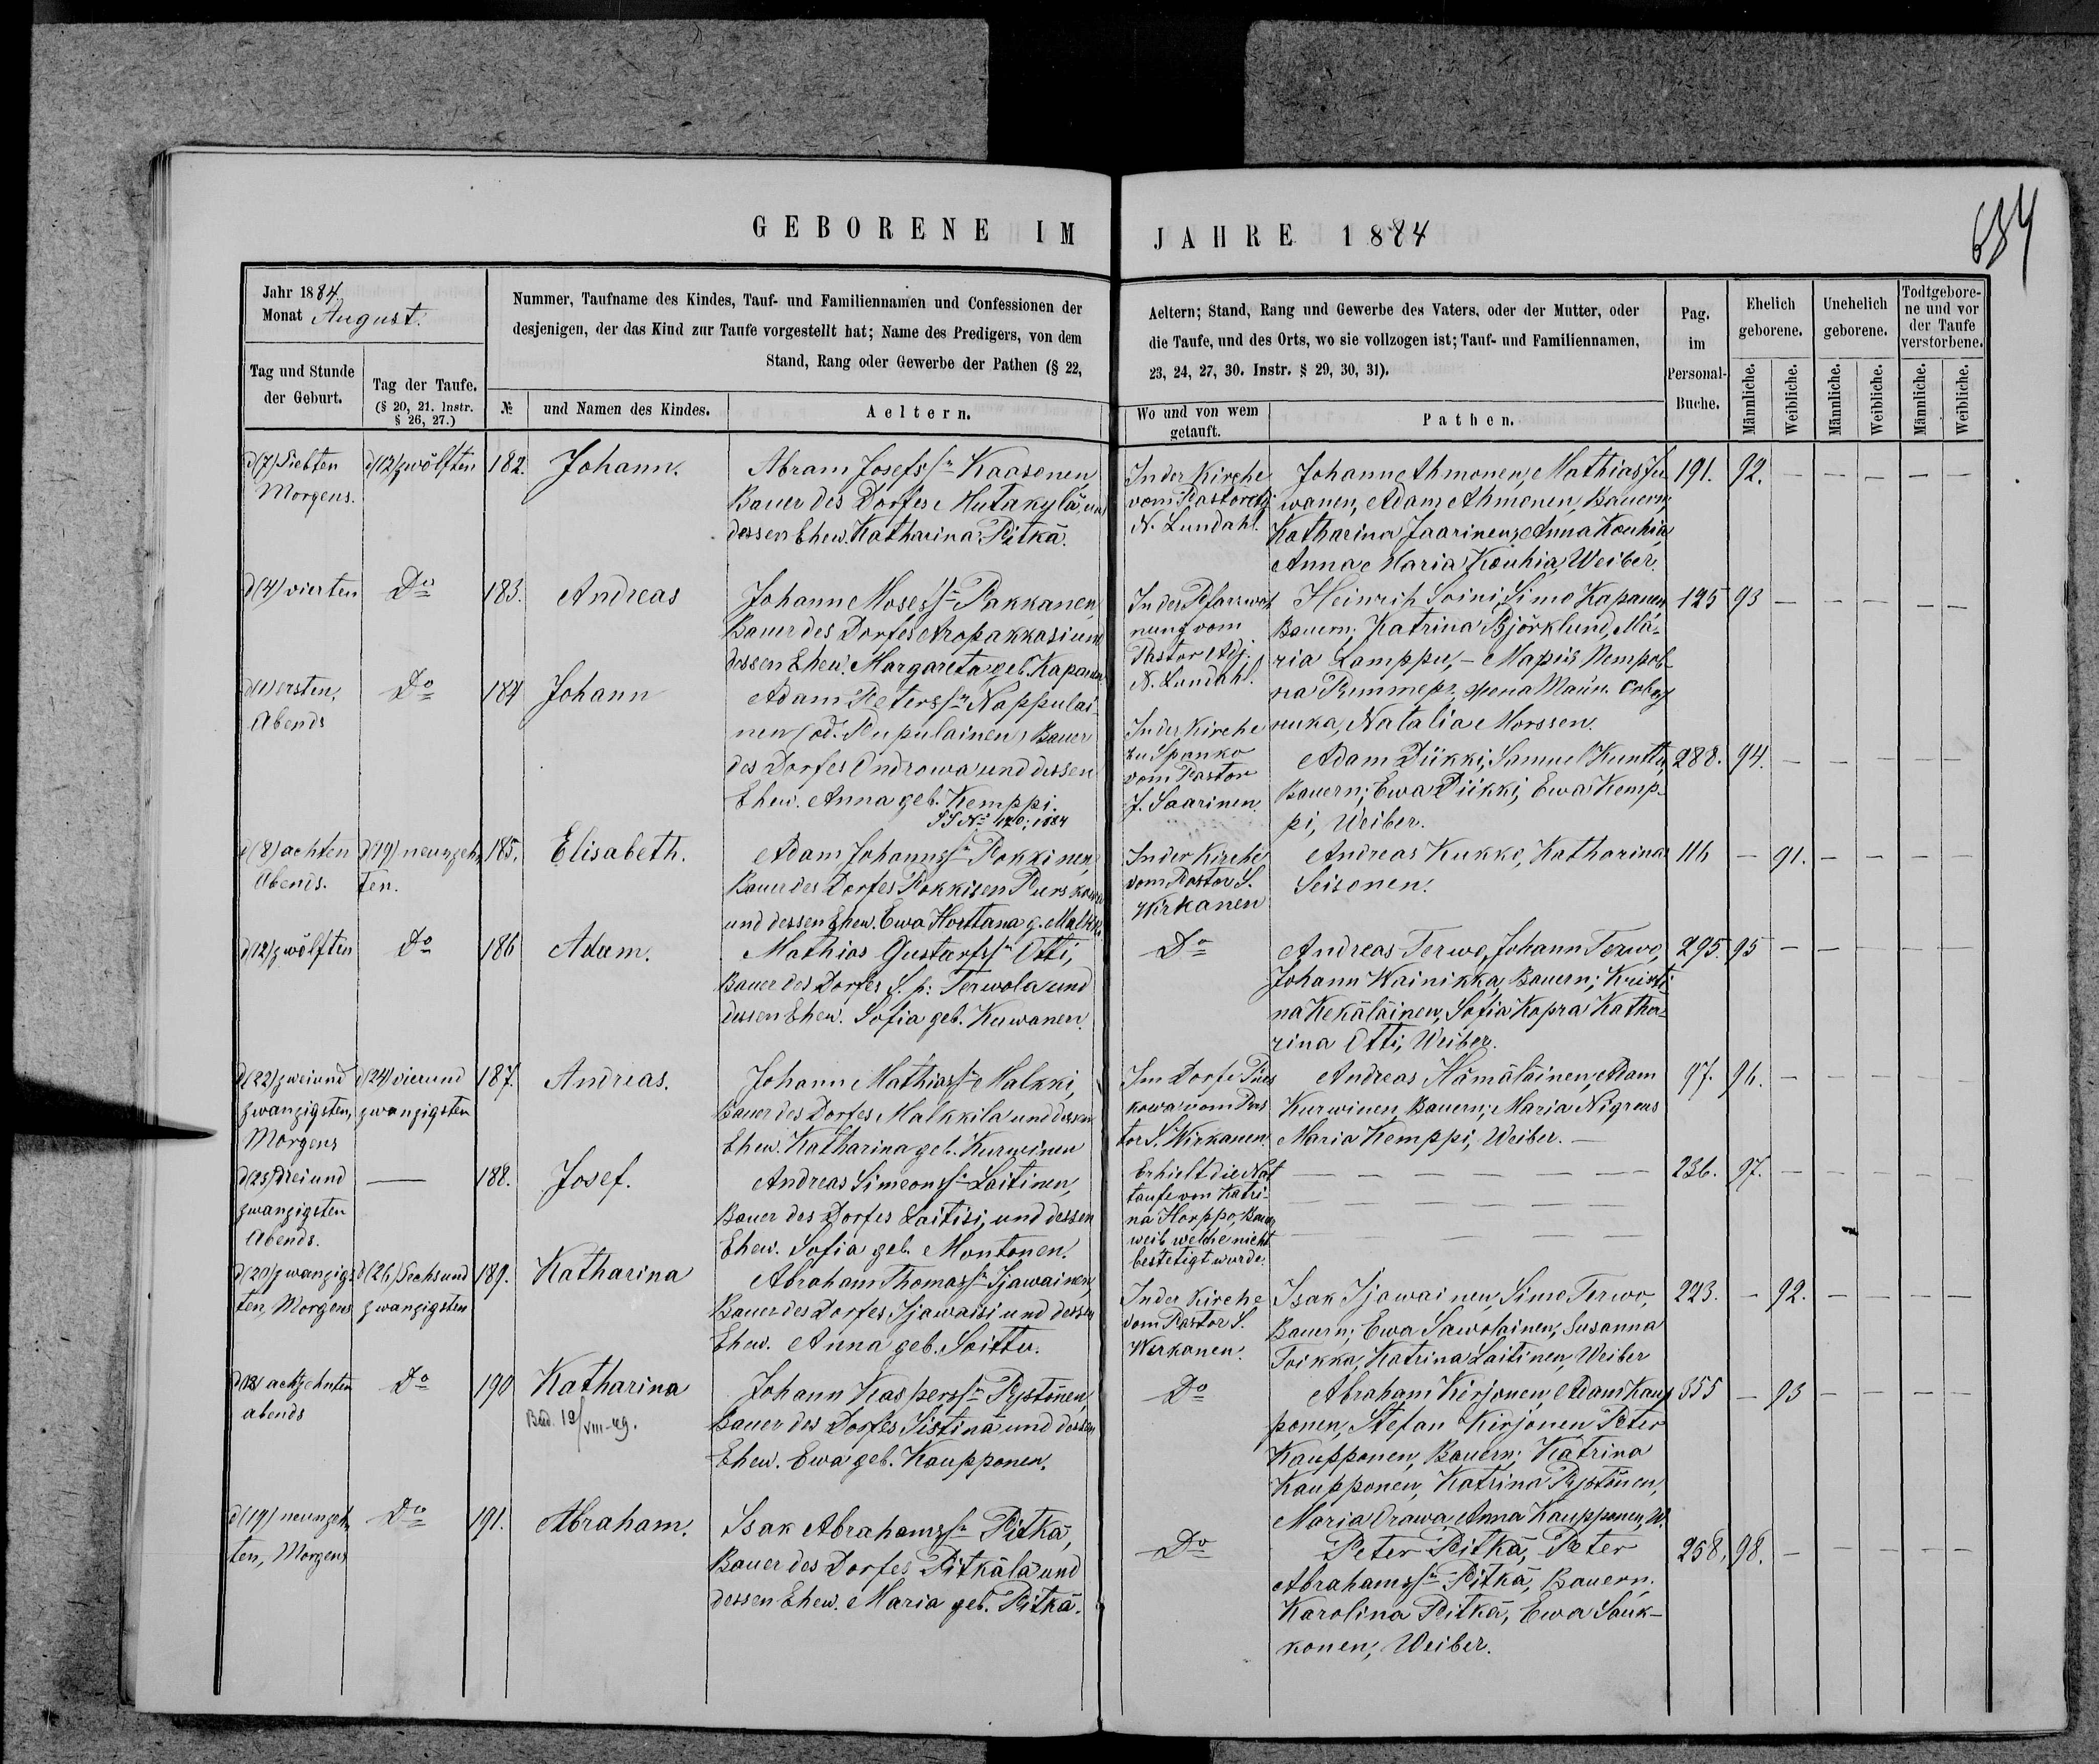 GEBORENE IM JAHRE 1884
684
Jahr 1884.
Monat August.
Nummer, Taufname des Kindes, Tauf- und Familiennamen und Confessionen der
desjenigen, der das Kind zur Taufe vorgestellt hat; Name des Predigers, von dem
Stand, Rang oder Gewerbe der Pathen (§ 22,
Aeltern; Stand, Rang und Gewerbe des Vaters, oder der Mutter, oder
die Taufe, und des Orts, wo sie vollzogen ist; Tauf- und Familiennamen,
23, 24, 27, 30. Instr. § 29, 30, 31).
Tag und Stunde
der Geburt.
Tag der Taufe.
(§ 20, 21. Instr.
§ 26, 27.)
№
und Namen des Kindes.
Aeltern.
Wo und von wem
getauft.
Pathen.
Pag.
im
Personal-
Buche.
Ehelich
geborene.
Unehelich
geborene.
Todtgebore-
ne und vor
der Taufe
verstorbene.
Männliche.
Weibliche.
Männliche.
Weibliche.
Männliche.
Weibliche.
d(7) siebten
Morgens.
d(12) zwölften
182.
Johann.
Abram Josefssn Kaasonen,
Bauer des Dorfes Mutakylä und
dessen Ehew. Katharina Pitkä.
In der Kirche
vom Pastor adj.
N. Lundahl.
Johann Ahmonen, Mathias Ju
wanen, Adam Ahmonen, Bauern;
Katharina Jaarinen, Anna Kouhia
Anna Maria Kouhia Weiber.
191.
92. – – – – –
d(4) vierten
Do
183.
Andreas
Johann Mosessn Pakkanen,
Bauer des Dorfes Aropakkasi und
dessen Ehew. Margareta, geb. Kapanen
In der Pfarrwoh
nung vom
Pastor Adj.
N. Lundahl.
Heinrih Soini, Simo Kapanen,
Bauern; Katrina Björklund, Ma-
ria Lamppu, –
nuka, Natalia Morssen.
125
93 – – – – –
d(1) ersten,
Abends
Do
184
Johann
Adam Peterssn Nappulai-
nen (od. Pupulainen), Bauer
des Dorfes Ondrowa und dessen
Ehew. Anna geb. Kemppi.
In der Kirche
zu Spanko
vom Pastor
J. Saarinen.
Adam Piikki, Samuel Kuntti,
Bauern; Ewa Piikki, Ewa Kemp-
pi, Weiber.
288.
94. – – – – –
d(8) achten
Abends.
d(19) neunzehn
ten.
185.
Elisabeth.
Adam Johannssn Pokkinen,
Bauer des Dorfes Pokkisen Purskowa
und dessen Ehew. Ewa Horttana g.
In der Kirche
vom Pastor S.
Wirkanen
Andreas Kukko, Katharina
Seisonen.
116
– 91. – – – –
d(12) zwölften
Do
186
Adam.
Mathias Gustafssn Otti,
Bauer des Dorfes S. p: Terwola und
dessen Ehew. Sofia geb. Kuwanen.
Do
Andreas Terwo, Johann Terwo,
Johann Wainikka, Bauern; Kristi
na Kekäläinen, Sofia Kopra Katha-
rina Otti, Weiber.
295.
95 – – – – –
d(22) zweiund
zwanzigsten,
Morgens
d(24) vierund
zwanzigsten
187.
Andreas.
Johann Mathiassn Malkki,
Bauer des Dorfes Malkkila und dessen
Ehew. Katharina geb. Kurwinen
Im Dorfe Purs
kowa vom Pas
tor S. Wirkanen.
Andreas Hämäläinen, Adam
Kurwinen, Bauern; Maria Nigreus
Maria Kemppi, Weiber. –
97.
96. – – – – –
d(23) dreiund
zwanzigsten
Abends.
—
188.
Josef.
Andreas Simeonssn Laitinen,
Bauer des Dorfes Laitisi, und dessen
Ehew. Sofia geb. Montonen.
Erhielt die Not
taufe von Katri-
na Horppo, Bauer
weib welche nicht
bestetigt wurde.
236.
97. – – – – –
d(20) zwanzigs
ten, Morgens
d(26) Sechsund
zwanzigsten
189.
Katharina
Abraham Thomassn Ijawainen,
Bauer des Dorfes Ijawaisi und dessen
Ehew. Anna geb. Soittu.
In der Kirche
vom Pastor S.
Wirkanen.
Isak Ijawainen, Simo Terwo,
Bauern; Ewa Sawolainen, Susanna
Toikka, Katrina Laitinen, Weiber
223.
– 92. – – – –
d(18) achtzehnten
abends
Do
190
Katharina
Johann Kasperssn Pystönen,
Bauer des Dorfes Sistinä und dessen
Ehew. Ewa geb. Kaupponen.
Do
Abraham Kirjonen, Adam Kaup
ponen, Stefan Kirjonen, Peter
Kaupponen, Bauern; Katrina
Kaupponen, Katrina Pystönen,
Maria Orawa, Anna Kaupponen, W.
355
– 93 – – – –
d(19) neunzehn
ten, Morgens
Do
191.
Abraham.
Isak Abrahamssn Pitkä,
Bauer des Dorfes Pitkälä und
dessen Ehew. Maria geb. Pitkä.
Do
Peter Pitkä, Peter
Abrahamssn Pitkä, Bauern;
Karolina Pitkä, Ewa Sauk-
konen, Weiber.
258.
98. – – – – –